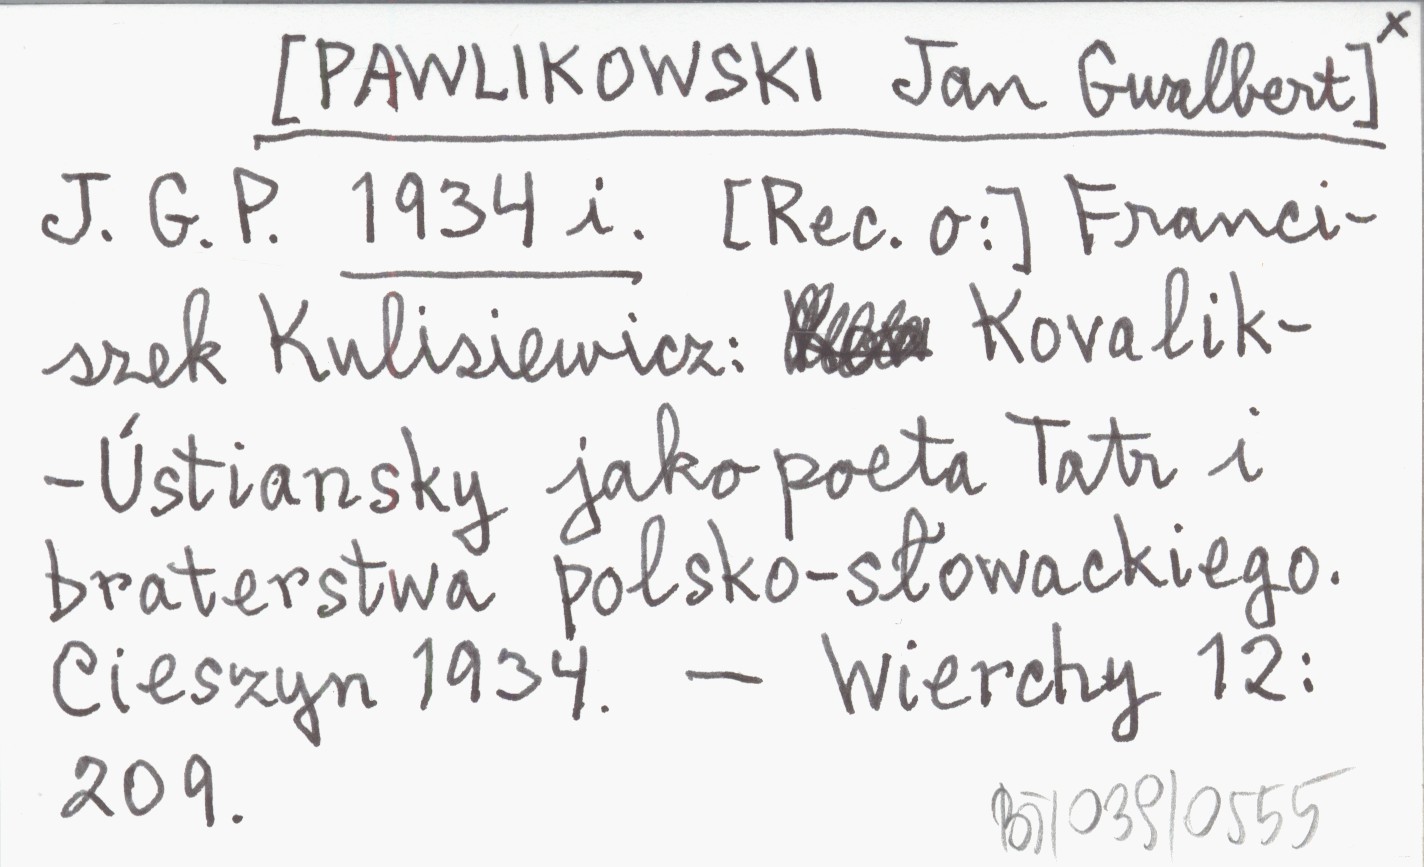 [PAWLIKOWSKI Jan Gwalbert]x
J. G. P. 1934 i. [Rec. o:] Franci-
szek Kulisiewicz: Kovalik-
-Ústiansky jako poeta Tatr i
braterstwa polsko-słowackiego.
Cieszyn 1934. — Wierchy 12:
209.
/039/0555